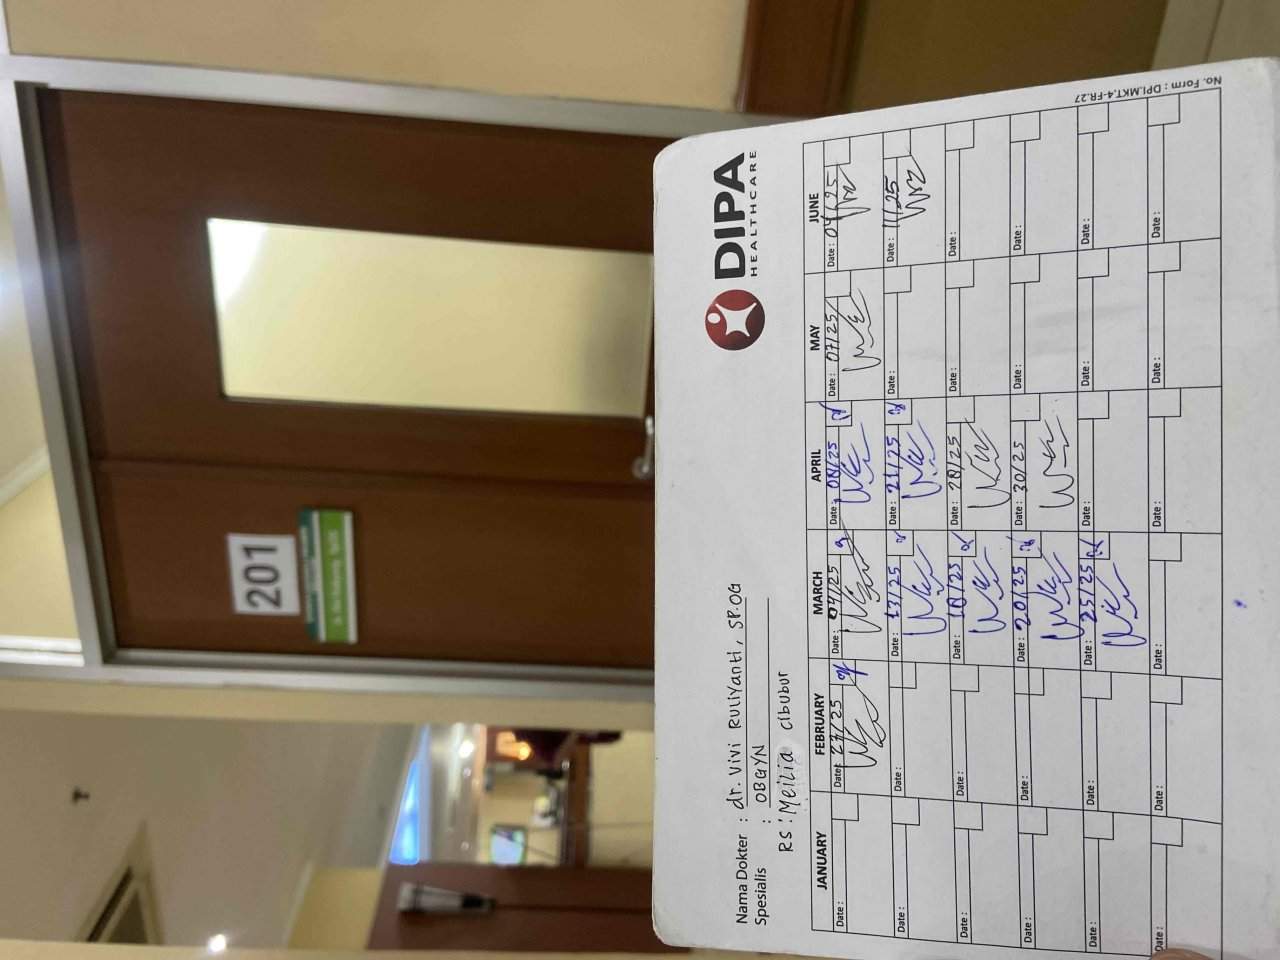 201
DIPA
HEALTHCARE
Nama Dokter : dr. Vivi Ruliyanti, SP.OG
Spesialis : OBGYN
RS : Meilia Cibubur
JANUARY FEBRUARY MARCH APRIL MAY JUNE
Date : Date : 27/25 Date : 04/25 Date : 08/25 Date : 07/25 Date : 04/25
Date : Date : Date : 13/25 Date : 21/25 Date : Date : 11/25
Date : Date : Date : 18/25 Date : 28/25 Date : Date :
Date : Date : Date : 20/25 Date : 30/25 Date : Date :
Date : Date : Date : 25/25 Date : Date : Date :
Date : Date : Date : Date : Date : Date :
No. Form : DPI.MKT.4-FR.27